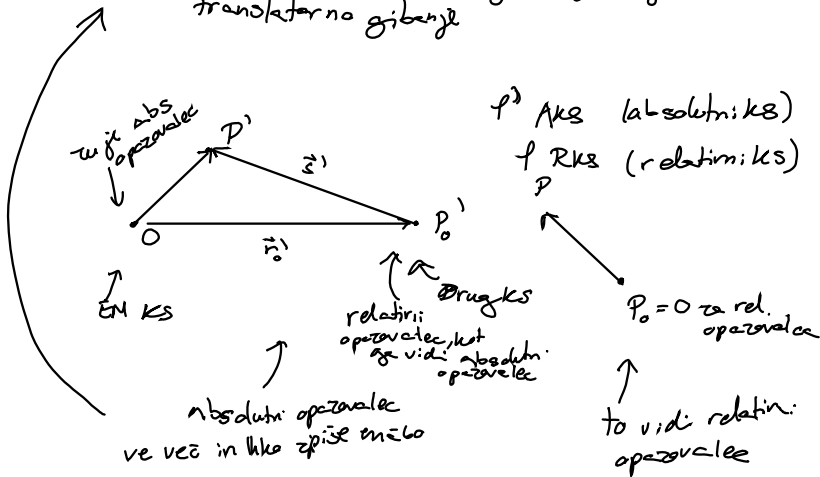 translatorno gibanje
tu je abs
opazovalec
P'
s⃗'
O
r⃗₀'
P₀'
EN KS
Drug ks
relativni
opazovalec, kot
ga vidi absolutni
opazovalec
absolutni opazovalec
ve več in lhko zpiše enačbo
φ' AKS (absolutni ks)
φ RKS (relativni ks)
P
P₀ = O za rel.
opazovalca
to vidi relativni
opazovalec